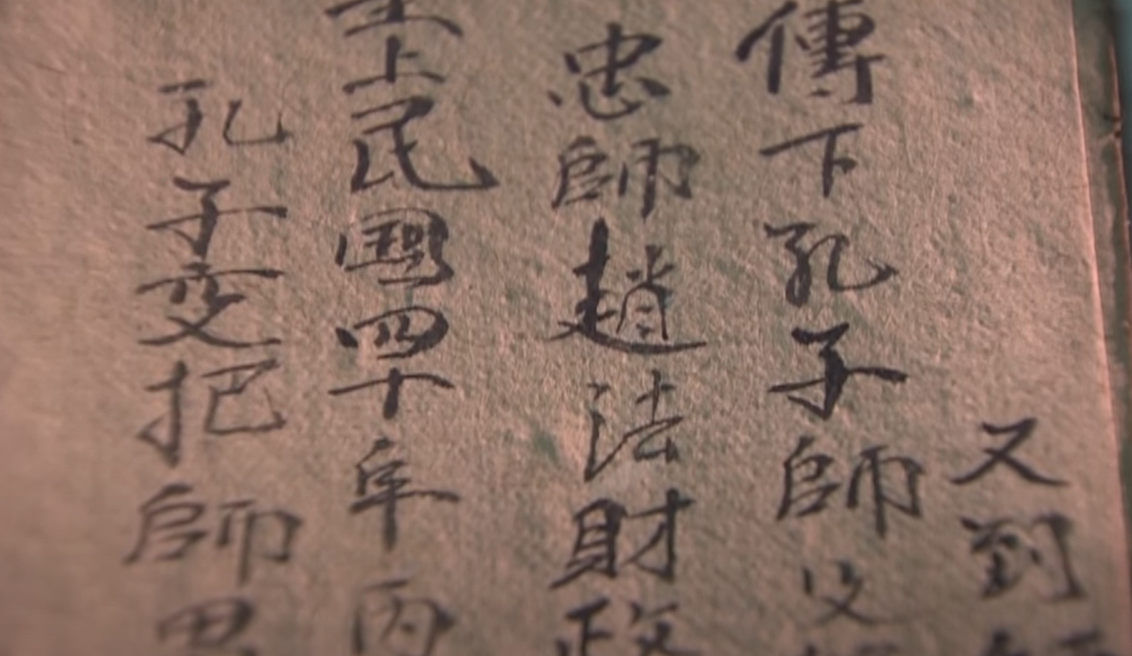 又到
傳下孔子師父
忠師趙法財政
至上民國四十年丙
孔子变把師男